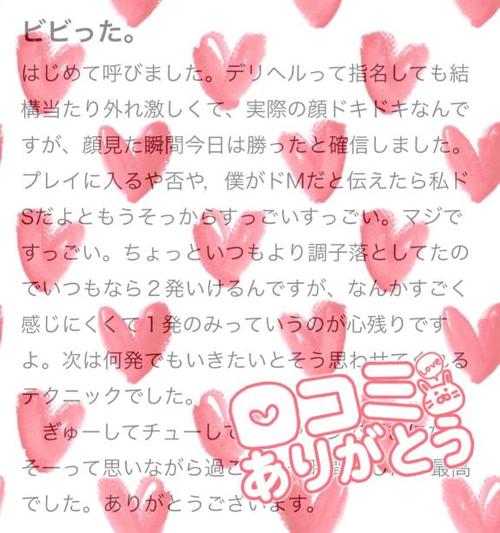 ビビった。
はじめて呼びました。デリヘルって指名しても結
構当たり外れ激しくて、実際の顔ドキドキなんで
すが、顔見た瞬間今日は勝ったと確信しました。
プレイに入るや否や，僕がドMだと伝えたら私ド
Sだよともうそっからすっごいすっごい。マジで
すっごい。ちょっといつもより調子落としてたの
でいつもなら２発いけるんですが、なんかすごく
感じにくくて１発のみっていうのが心残りです
よ。次は何発でもいきたいとそう思わせてくれる
テクニックでした。
ぎゅーしてチューして
そーって思いながら過ご
最高
でした。ありがとうございます。
Love
口コミ
ありがとう